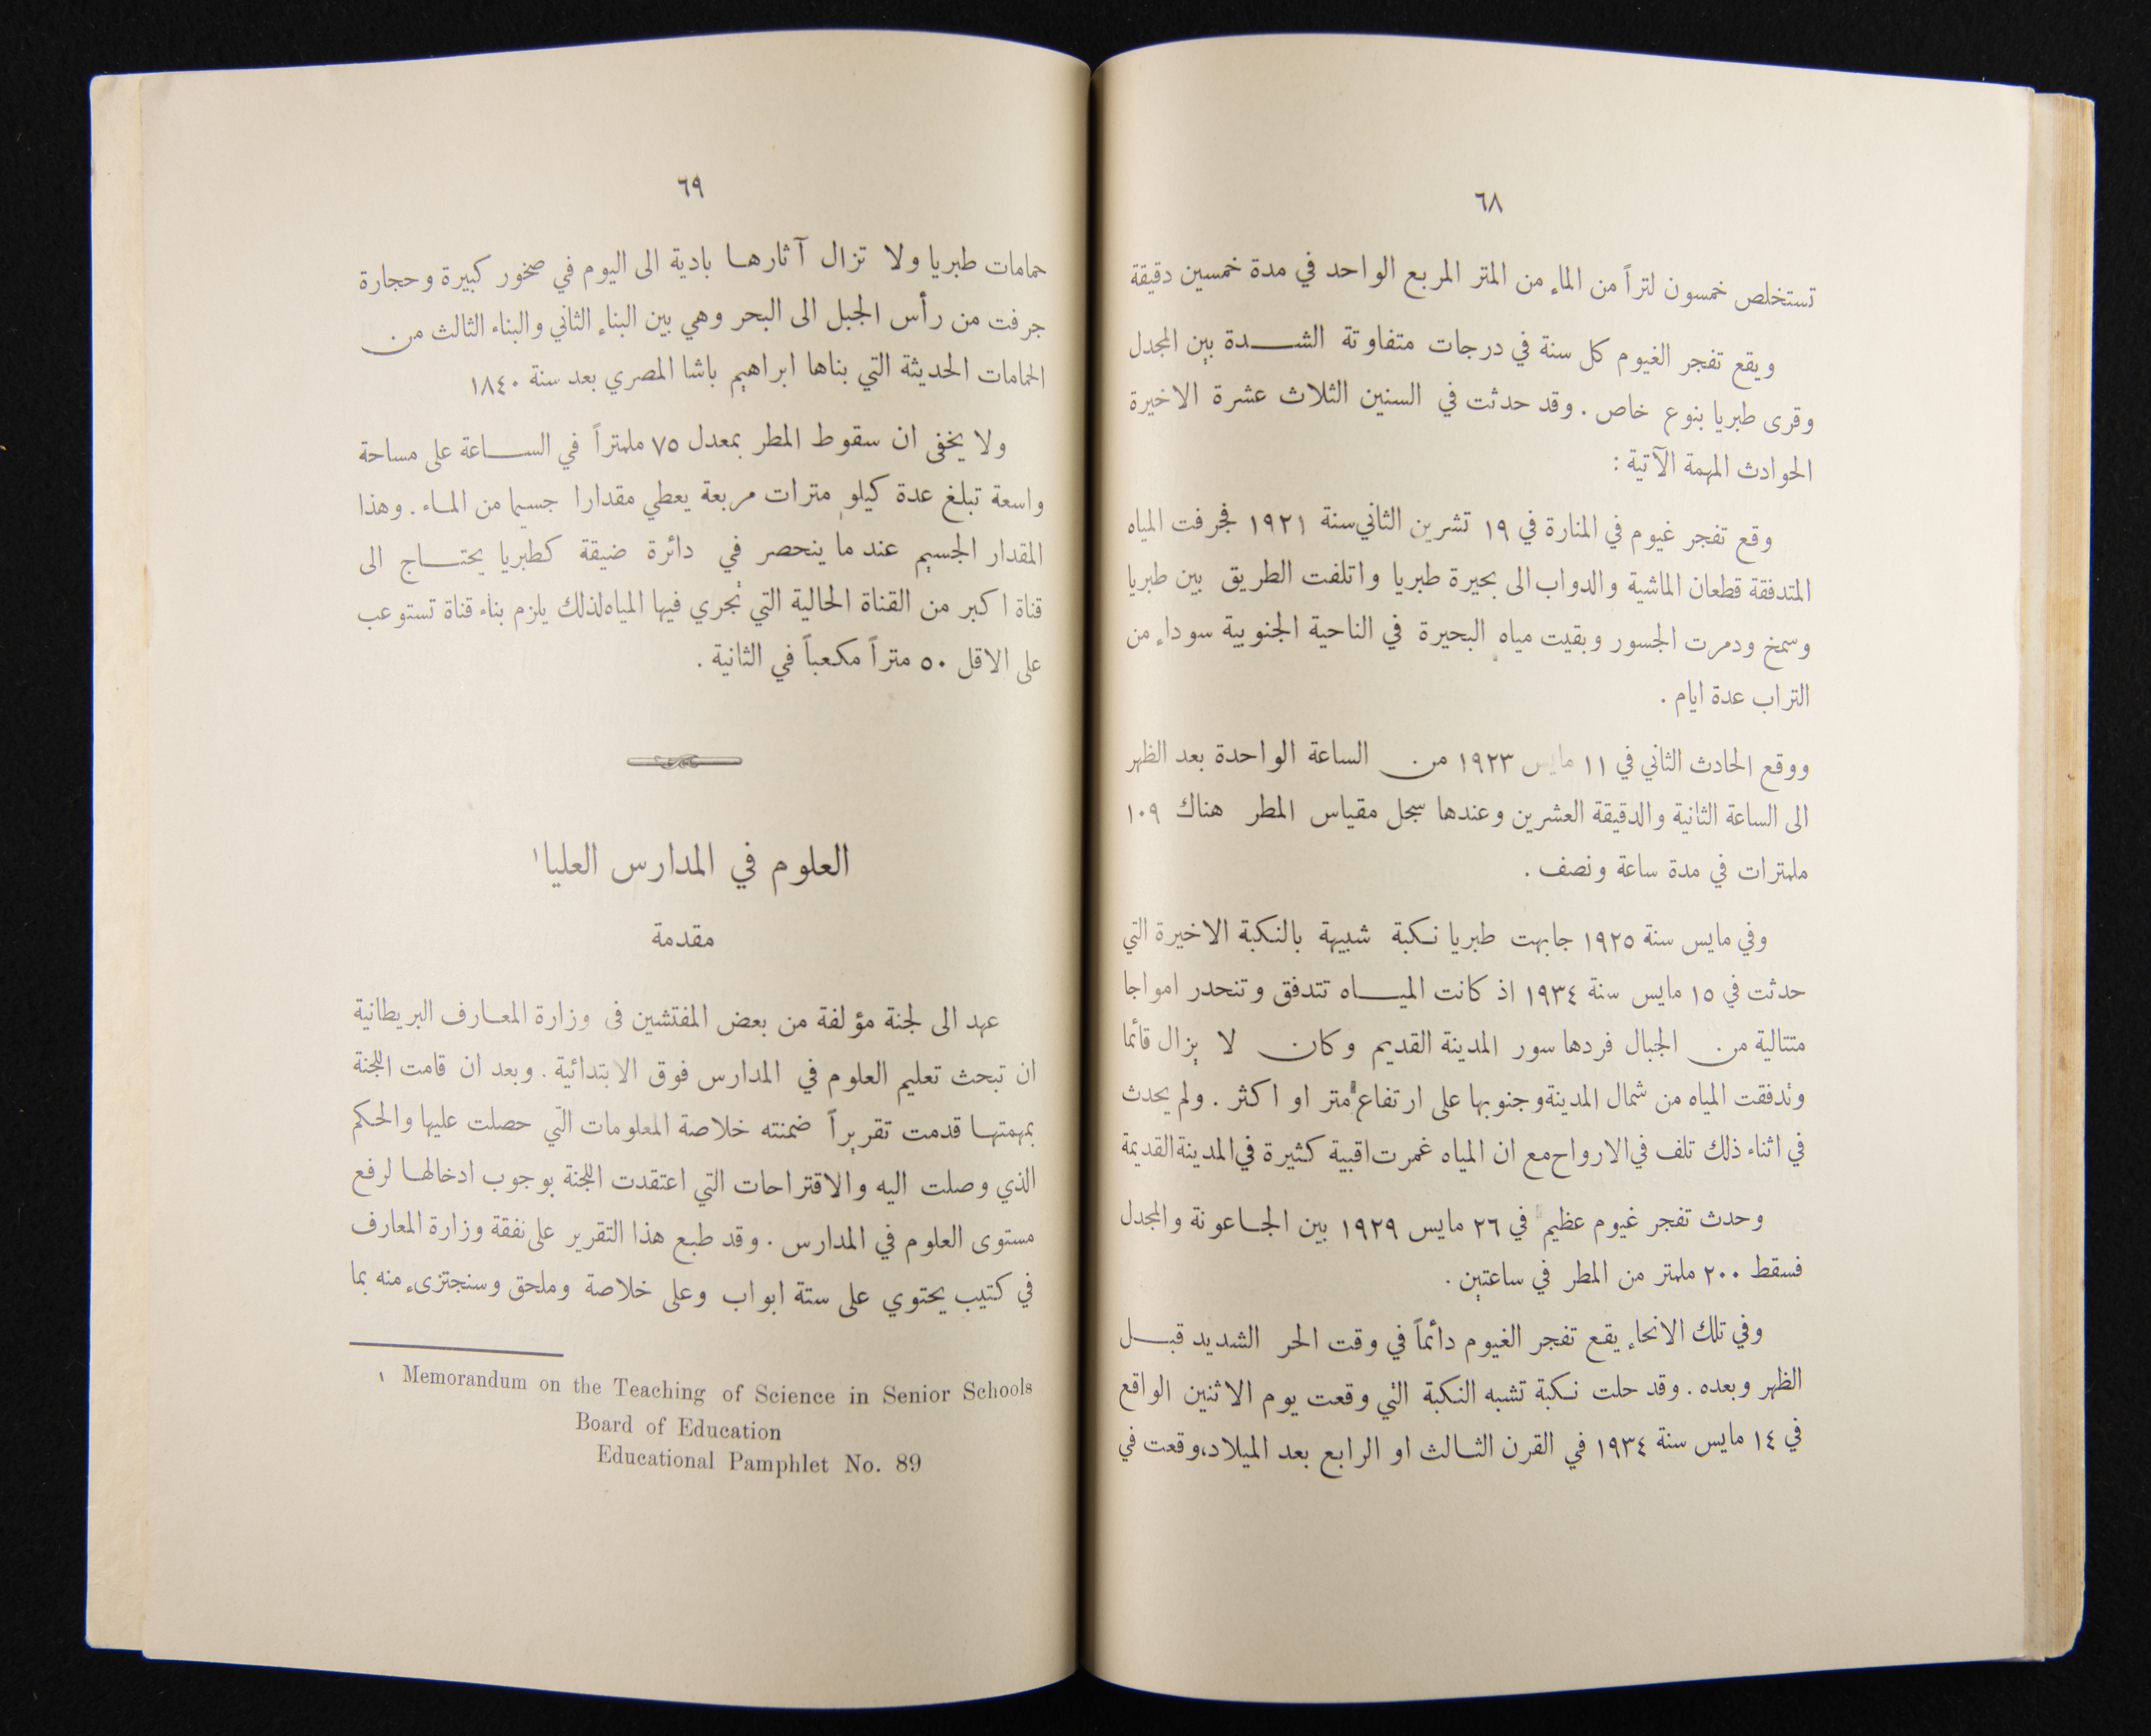 ٦٨
تستخلص خمسون لتراً من الماء من المتر المربع الواحد في مدة خمسين دقيقة
ويقع تفجر الغيوم كل سنة في درجات متفاوتة الشدة بين المجدل
وقرى طبريا بنوع خاص . وقد حدثت في السنين الثلاث عشرة الاخيرة
الحوادث المهمة الآتية :
وقع تفجر غيوم في المنارة في ١٩ تشرين الثاني سنة ١٩٢١ فجرفت المياه
المتدفقة قطعان الماشية والدواب الى بحيرة طبريا واتلفت الطريق بين طبريا
وسمخ ودمرت الجسور وبقيت مياه البحيرة في الناحية الجنوبية سوداء من
التراب عدة ايام .
ووقع الحادث الثاني في ١١ مايس ١٩٢٣ من الساعة الواحدة بعد الظهر
الى الساعة الثانية والدقيقة العشرين وعندها سجل مقياس المطر هناك ١٠٩
ملمترات في مدة ساعة ونصف .
وفي مايس سنة ١٩٢٥ جابهت طبريا نكبة شبيهة بالنكبة الاخيرة التي
حدثت في ١٥ مايس سنة ١٩٣٤ اذ كانت المياه تتدفق وتنحدر امواجا
متتالية من الجبال فردها سور المدينة القديم وكان لا يزال قائما
وتدفقت المياه من شمال المدينة وجنوبها على ارتفاع متر او اكثر . ولم يحدث
في اثناء ذلك تلف في الارواح مع ان المياه غمرت اقبية كثيرة في المدينة القديمة
وحدث تفجر غيوم عظيم في ٢٦ مايس ١٩٢٩ بين الجاعونة والمجدل
فسقط ٢٠٠ ملمتر من المطر في ساعتين .
وفي تلك الانحاء يقع تفجر الغيوم دائماً في وقت الحر الشديد قبل
الظهر وبعده . وقد حلت نكبة تشبه النكبة التي وقعت يوم الاثنين الواقع
في ١٤ مايس سنة ١٩٣٤ في القرن الثالث او الرابع بعد الميلاد، وقعت في
٦٩
حمامات طبريا ولا تزال آثارها بادية الى اليوم في صخور كبيرة وحجارة
جرفت من رأس الجبل الى البحر وهي بين البناء الثاني والبناء الثالث من
الحمامات الحديثة التي بناها ابراهيم باشا المصري بعد سنة ١٨٤٠
ولا يخفى ان سقوط المطر بمعدل ٧٥ ملمتراً في الساعة على مساحة
واسعة تبلغ عدة كيلو مترات مربعة يعطي مقدارا جسيما من الماء . وهذا
المقدار الجسيم عند ما ينحصر في دائرة ضيقة كطبريا يحتاج الى
قناة اكبر من القناة الحالية التي تجري فيها المياه لذلك يلزم بناء قناة تستوعب
على الاقل ٥٠ متراً مكعباً في الثانية .
العلوم في المدارس العليا١
مقدمة
عهد الى لجنة مؤلفة من بعض المفتشين في وزارة المعارف البريطانية
ان تبحث تعليم العلوم في المدارس فوق الابتدائية . وبعد ان قامت اللجنة
بمهمتها قدمت تقريراً ضمنته خلاصة المعلومات التي حصلت عليها والحكم
الذي وصلت اليه والاقتراحات التي اعتقدت اللجنة بوجوب ادخالها لرفع
مستوى العلوم في المدارس . وقد طبع هذا التقرير على نفقة وزارة المعارف
في كتيب يحتوي على ستة ابواب وعلى خلاصة وملحق وسنجتزىء منه بما
١ Memorandum on the Teaching of Science in Senior Schools
Board of Education
Educational Pamphlet No. 89